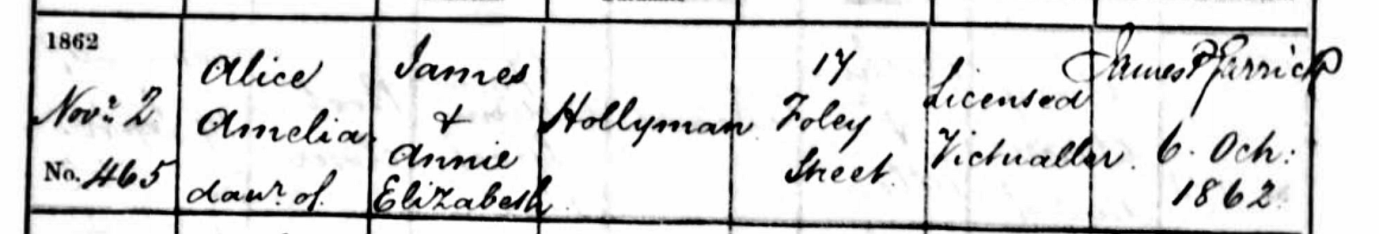 1862
Novr. 2
No. 465
Alice
Amelia
daur. of
James
&
Annie
Elizabeth
Hollyman
17
Foley
Street
Licensed
Victualler.
James P
6. Oct:
1862